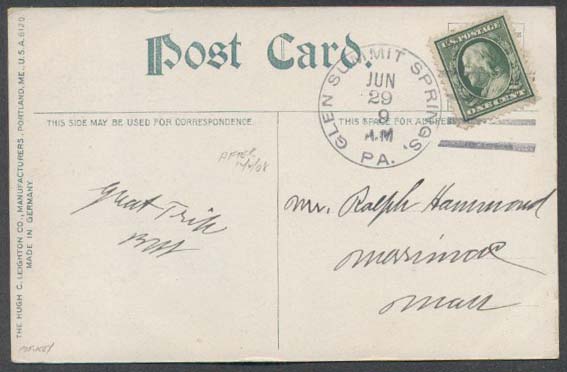 Post Card.
THIS SIDE MAY BE USED FOR CORRESPONDENCE.
THIS SPACE FOR ADDRE
GLEN SUMMIT SPRINGS,
JUN
29
9
A.M
PA.
U.S.POSTAGE
ONE CENT
AFTER
Great Trip
Mr. Ralph Hammond
Merrimac
Mass
THE HUGH C. LEIGHTON CO., MANUFACTURERS, PORTLAND, ME., U.S.A.
MADE IN GERMANY.